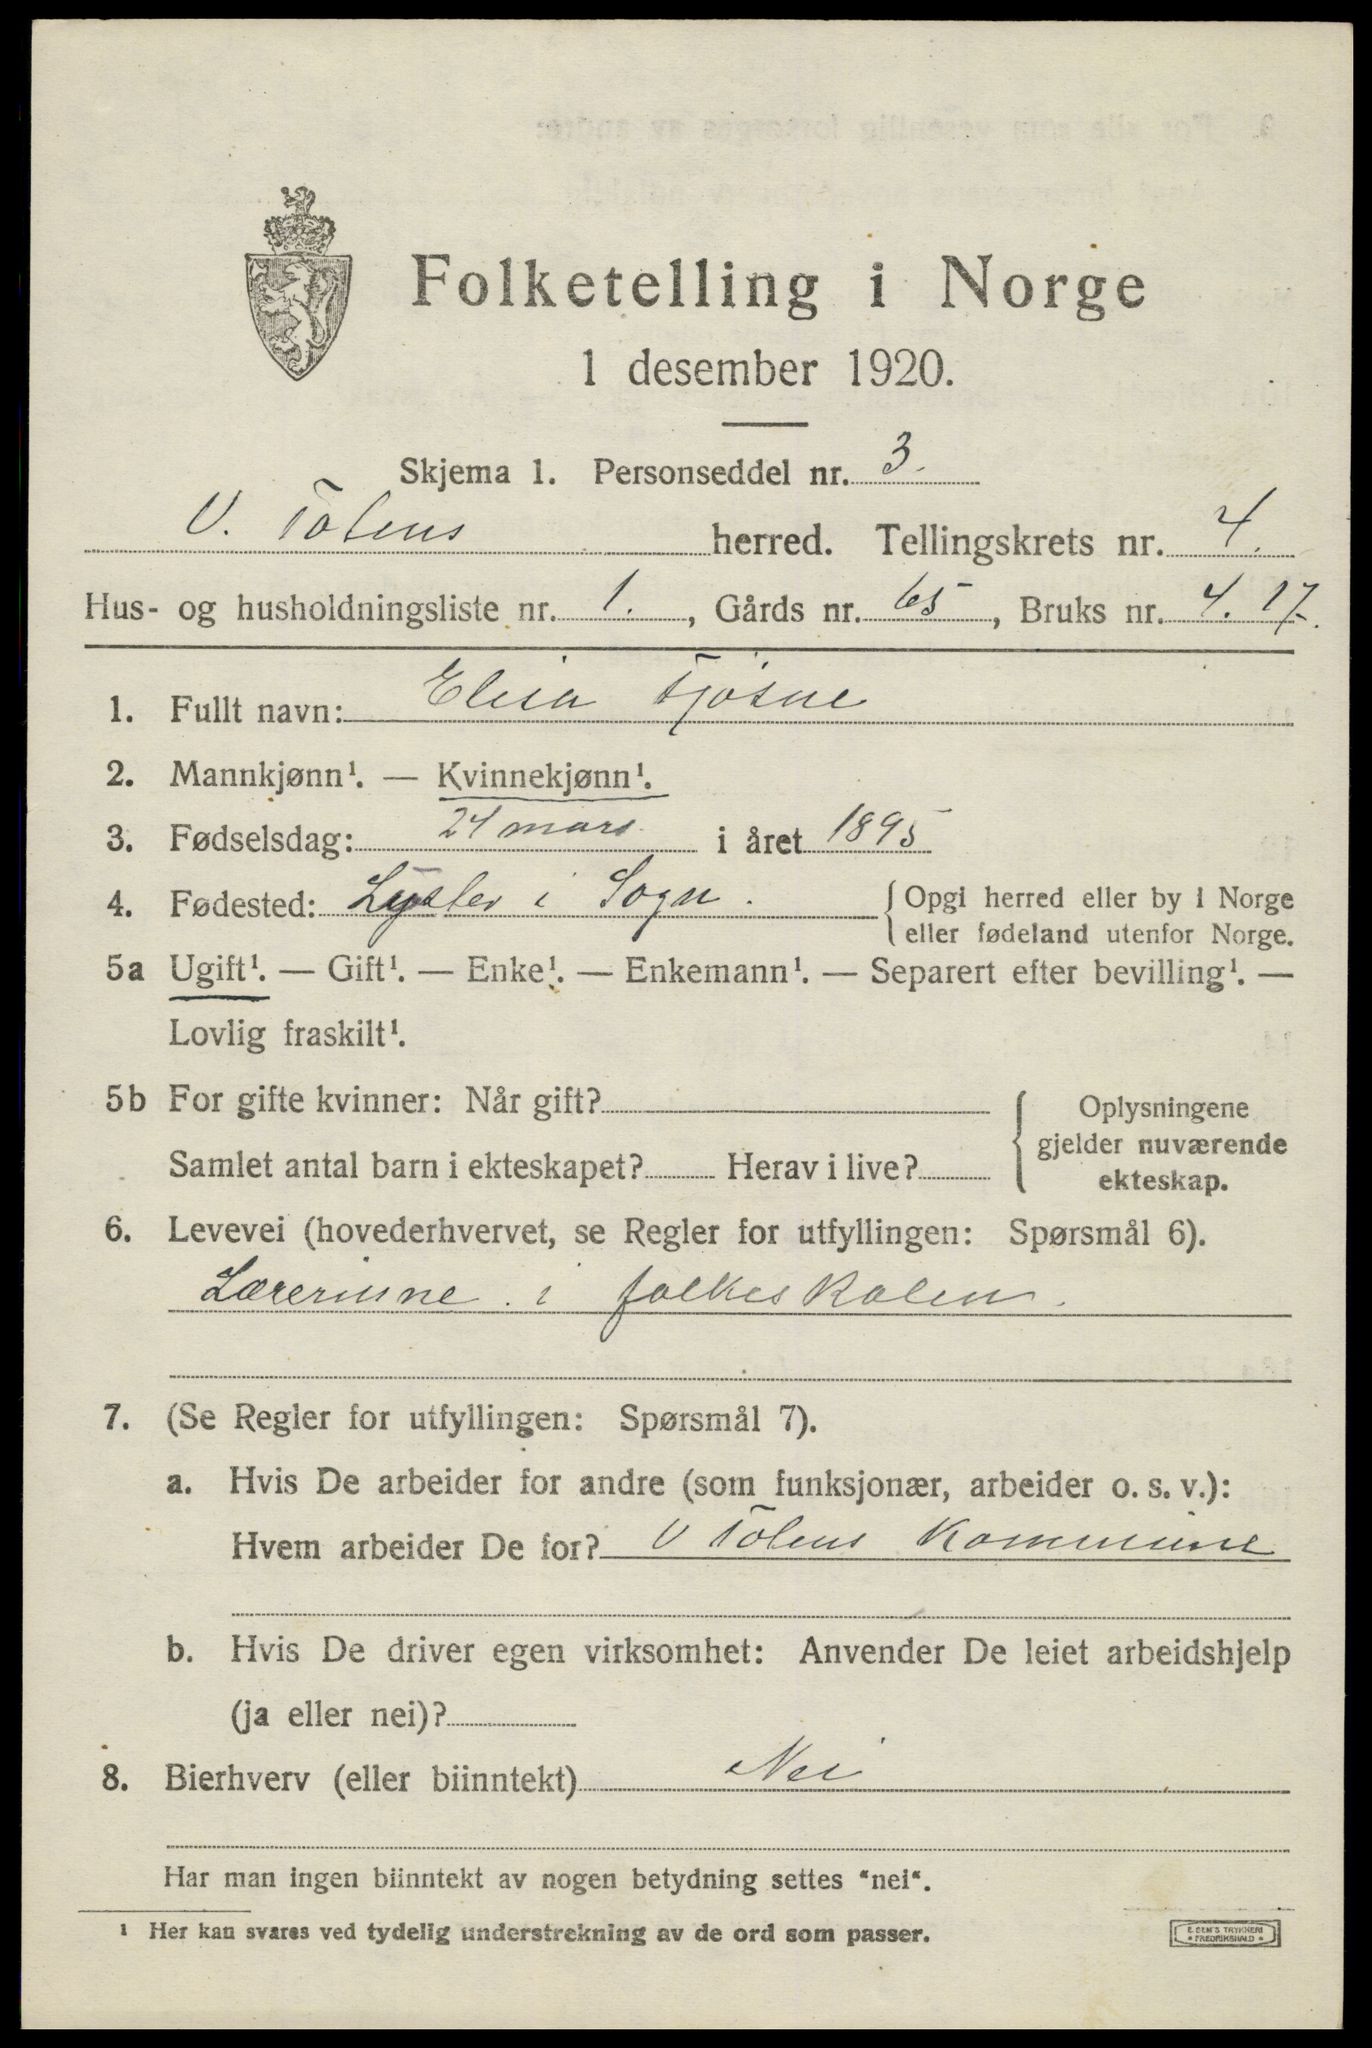 Folketelling i Norge
1 desember 1920.
Skjema 1. Personseddel nr. 3.
V. Totens herred. Tellingskrets nr. 4.
Hus- og husholdningsliste nr. 1., Gårds nr. 65, Bruks nr. 4.17.
1. Fullt navn: Elisa Fjøsne
2. Mannkjønn¹. — Kvinnekjønn¹.
3. Fødselsdag: 24 mars i året 1895
4. Fødested: Lyster i Sogn. { Opgi herred eller by i Norge
eller fødeland utenfor Norge.
5a Ugift¹. — Gift¹. — Enke¹. — Enkemann¹. — Separert efter bevilling¹. —
Lovlig fraskilt¹.
5b For gifte kvinner: Når gift? { Oplysningene
gjelder nuværende
Samlet antal barn i ekteskapet? Herav i live? ekteskap.
6. Levevei (hovederhvervet, se Regler for utfyllingen: Spørsmål 6).
Lærerinne i folkeskolen.
7. (Se Regler for utfyllingen: Spørsmål 7).
a. Hvis De arbeider for andre (som funksjonær, arbeider o. s. v.):
Hvem arbeider De for? V Totens Kommune
b. Hvis De driver egen virksomhet: Anvender De leiet arbeidshjelp
(ja eller nei)?
8. Bierhverv (eller biinntekt) Nei
Har man ingen biinntekt av nogen betydning settes "nei".
¹ Her kan svares ved tydelig understrekning av de ord som passer.
E. SEM'S TRYKKERI
FREDRIKSHALD